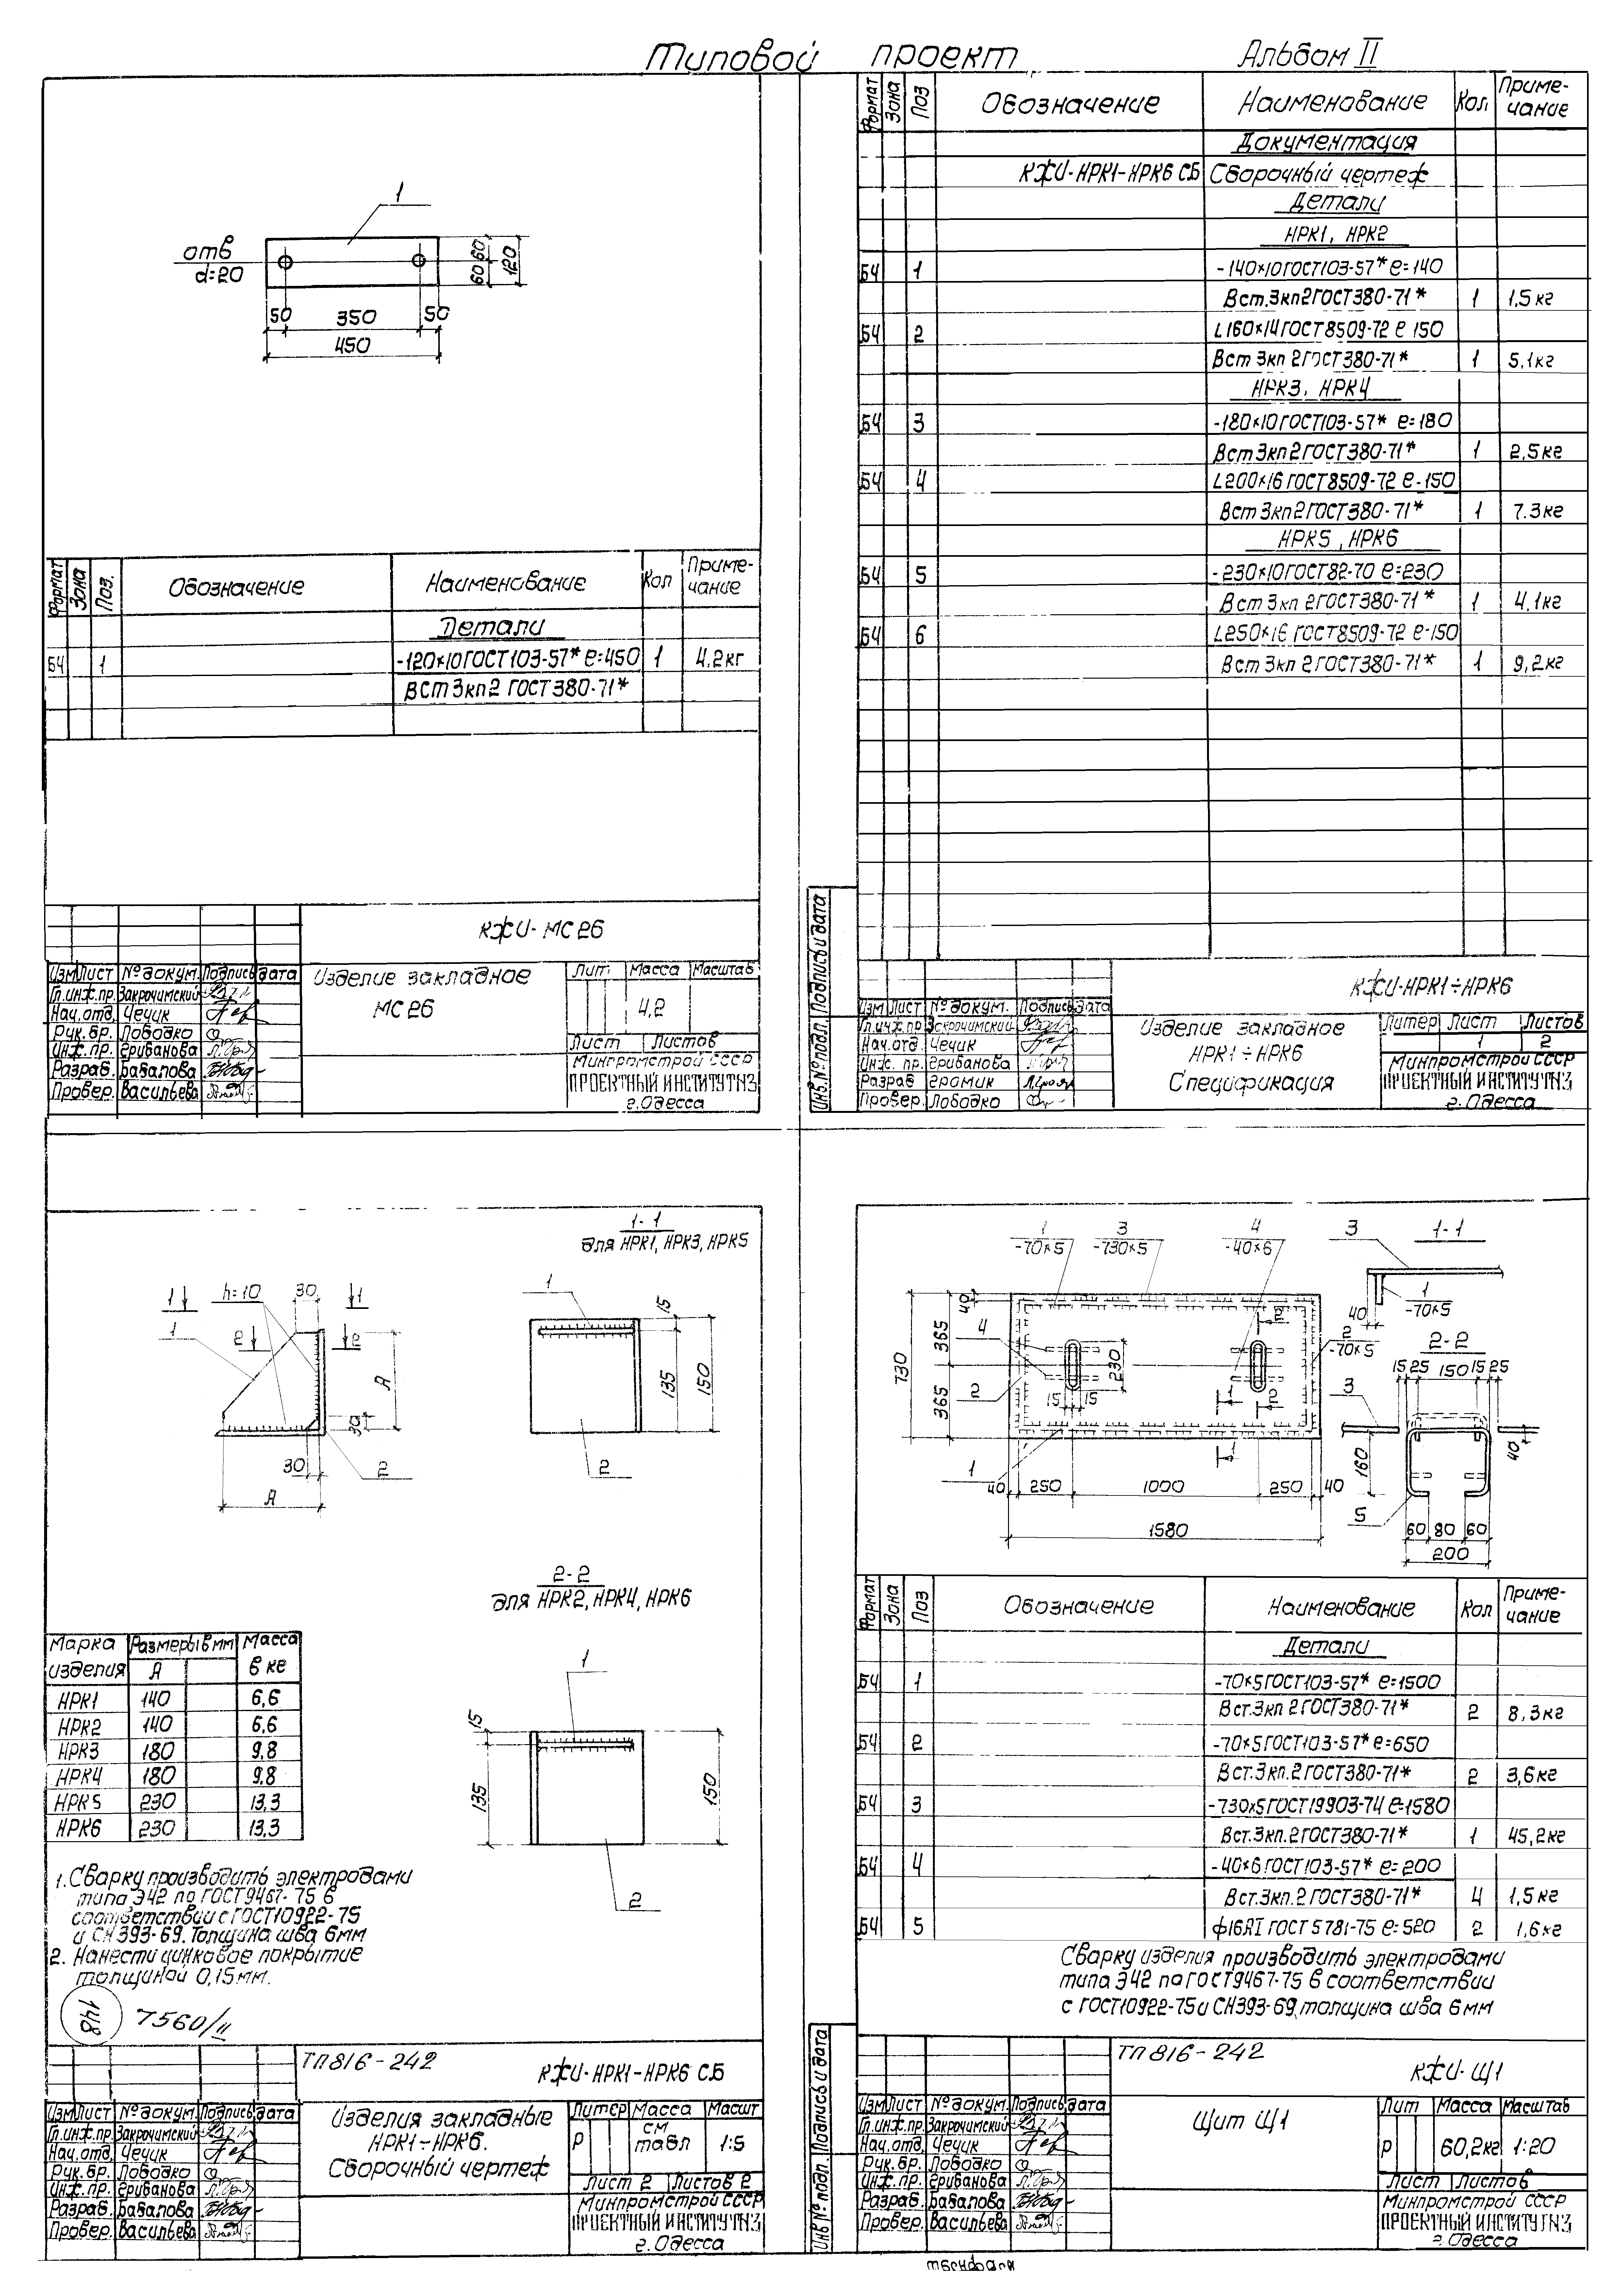 Типовой проект Альбом II
1
отв
d=20
60 60 120
50 350 50
450
Формат Зона Поз. Обозначение Наименование Кол Приме-
чание
Детали
БЧ 1 -120×10 ГОСТ 103-57* ℓ=450 1 4,2кг
Вст3кп2 ГОСТ 380-71*
КЖИ-МС26
Изм Лист № докум. Подпись дата
Гл.инж.пр. Закрочимский
Нач.отд. Чечик
Рук.бр. Лободко
Инж.пр. Грибанова
Разраб. Бабалова
Провер. Васильева
Изделие закладное
МС 26
Лит. Масса Масштаб
4,2
Лист Листов
Минпромстрой СССР
ПРОЕКТНЫЙ ИНСТИТУТ №3
г.Одесса
Формат Зона Поз Обозначение Наименование Кол. Приме-
чание
Документация
КЖИ-НРК1-НРК6 СБ Сборочный чертеж
Детали
НРК1, НРК2
БЧ 1 -140×10 ГОСТ 103-57* ℓ=140
Вст.3кп2 ГОСТ 380-71* 1 1,5кг
БЧ 2 L160×14 ГОСТ 8509-72 ℓ 150
Вст 3кп 2 ГОСТ 380-71* 1 5,1кг
НРК3, НРК4
БЧ 3 -180×10 ГОСТ 103-57* ℓ=180
Вст 3кп 2 ГОСТ 380-71* 1 2,5кг
БЧ 4 L200×16 ГОСТ 8509-72 ℓ-150
Вст 3кп 2 ГОСТ 380-71* 1 7.3кг
НРК5, НРК6
БЧ 5 -230×10 ГОСТ 82-70 ℓ=230
Вст 3кп 2 ГОСТ 380-71* 1 4,1кг
БЧ 6 L250×16 ГОСТ 8509-72 ℓ-150
Вст 3кп 2 ГОСТ 380-71* 1 9,2кг
Инв.№ подл. Подпись и дата
КЖИ-НРК1÷НРК6
Изм Лист № докум. Подпись дата
Гл.инж.пр Закрочимский
Нач.отд. Чечик
Инж. пр. Грибанова
Разраб Громик
Провер. Лободко
Изделие закладное
НРК1÷НРК6
Спецификация
Литер Лист Листов
1 2
Минпромстрой СССР
ПРОЕКТНЫЙ ИНСТИТУТ №3
г. Одесса
1-1
для НРК1, НРК3, НРК5
1 h=10 30 1
1 2 2
А
30
30 2
А
1
15
135 150
2
2-2
для НРК2, НРК4, НРК6
1
15
135 150
2
Марка изделия Размеры в мм Масса в кг
А
НРК1 140 6,6
НРК2 140 6,6
НРК3 180 9,8
НРК4 180 9,8
НРК5 230 13,3
НРК6 230 13,3
1. Сварку производить электродами
типа Э42 по ГОСТ 9467-75 в
соответствии с ГОСТ 10922-75
и СН 393-69. Толщина шва 6мм
2. Нанести цинковое покрытие
толщиной 0,15мм.
148 7560/II
ТП 816-242 КЖИ-НРК1-НРК6 СБ
Изм Лист № докум. Подпись дата
Гл.инж.пр. Закрочимский
Нач.отд. Чечик
Рук.бр. Лободко
Инж.пр. Грибанова
Разраб Бабалова
Провер. Васильева
Изделия закладные
НРК1÷НРК6.
Сборочный чертеж
Литер Масса Масшт
Р см табл 1:5
Лист 2 Листов 2
Минпромстрой СССР
ПРОЕКТНЫЙ ИНСТИТУТ №3
г.Одесса
1 3 4
-70×5 -730×5 -40×6
40
4
730 365 365
2
230
15 15
2
2
-70×5
1 2
1 1
40 250 1000 250 40
1580
3 1-1
1
40 -70×5
2-2
15 25 150 15 25
3
160 40
5
60 80 60
200
Формат Зона Поз Обозначение Наименование Кол Приме-
чание
Детали
БЧ 1 -70×5 ГОСТ 103-57* ℓ=1500
Вст.3кп 2 ГОСТ 380-71* 2 8,3кг
БЧ 2 -70×5 ГОСТ 103-57* ℓ=650
Вст.3кп.2 ГОСТ 380-71* 2 3,6кг
БЧ 3 -730×5 ГОСТ 19903-74 ℓ=1580
Вст.3кп.2 ГОСТ 380-71* 1 45,2кг
БЧ 4 -40×6 ГОСТ 103-57* ℓ=200
Вст.3кп.2 ГОСТ 380-71* 4 1,5кг
БЧ 5 ф16АI ГОСТ 5781-75 ℓ=520 2 1,6кг
Сварку изделия производить электродами
типа Э42 по ГОСТ 9467-75 в соответствии
с ГОСТ 10922-75 и СН393-69, толщина шва 6мм
Инв № подл. Подпись и дата
ТП 816-242 КЖИ-Щ1
Изм Лист № докум. Подпись дата
Гл.инж.пр. Закрочимский
Нач.отд. Чечик
Рук.бр. Лободко
Инж.пр. Грибанова
Разраб. Бабалова
Провер. Васильева
Щит Щ1
Лит Масса Масштаб
Р 60,2кг 1:20
Лист Листов
Минпромстрой СССР
ПРОЕКТНЫЙ ИНСТИТУТ №3
г.Одесса